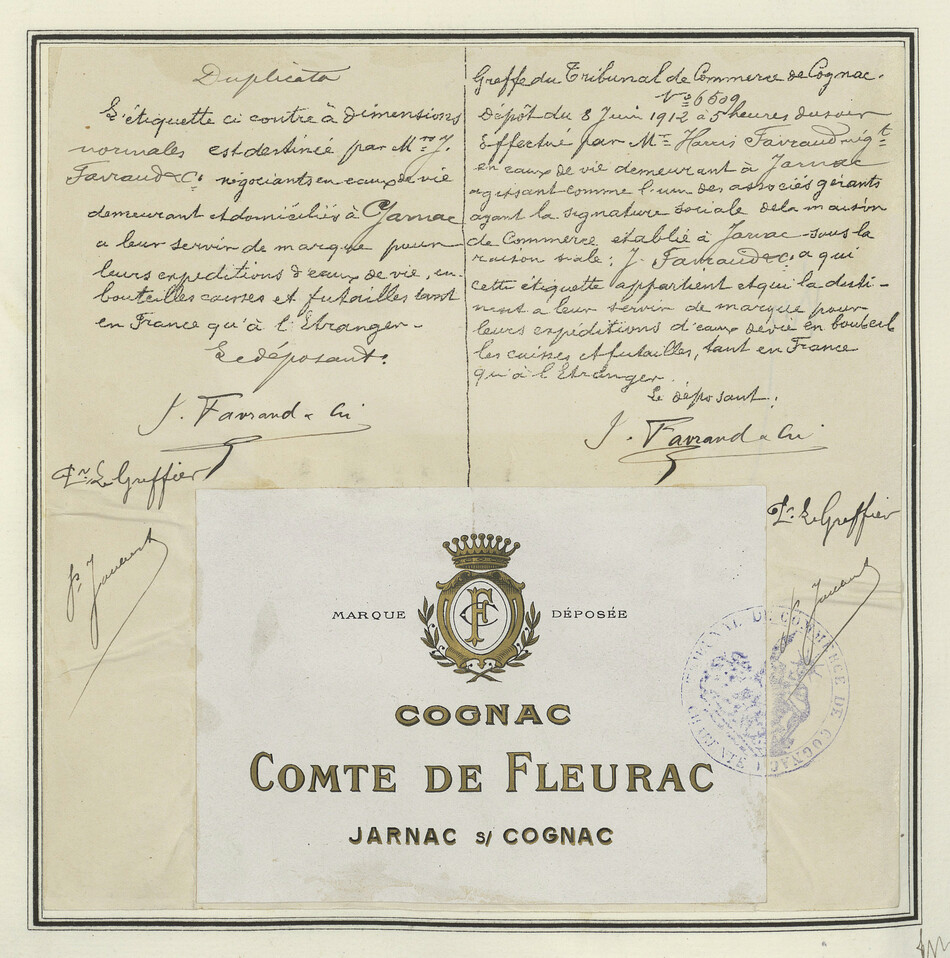 Duplicata
L'étiquette ci contre à dimensions
normales est destinée par Mrs J.
Favraud & Cie négociants en eaux de vie
demeurant et domiciliés à Jarnac
a leur servir de marque pour
leurs expéditions d'eaux de vie, en
bouteilles caisses et futailles tant
en France qu'à l'Etranger.
Le déposant:
J. Favraud & Cie
Pr Le Greffier
Greffe du Tribunal de Commerce de Cognac.
No 6509
dépôt du 8 Juin 1912 à 5 heures du soir
Effectué par Mr Harris Favraud négt
en eaux de vie demeurant à Jarnac
agissant comme l'un des associés gérants
ayant la signature sociale de la maison
de Commerce établie à Jarnac sous la
raison siale: J. Favraud & Cie a qui
cette étiquette appartient et qui la desti-
nent a leur servir de marque pour
leurs expéditions d'eaux de vie en bouteil
les caisses et futailles, tant en France
qu'à l'Etranger.
Le déposant:
J. Favraud & Cie
Pr Le Greffier
MARQUE DÉPOSÉE
COGNAC
COMTE DE FLEURAC
JARNAC S/ COGNAC
TRIBUNAL DE COMMERCE DE COGNAC